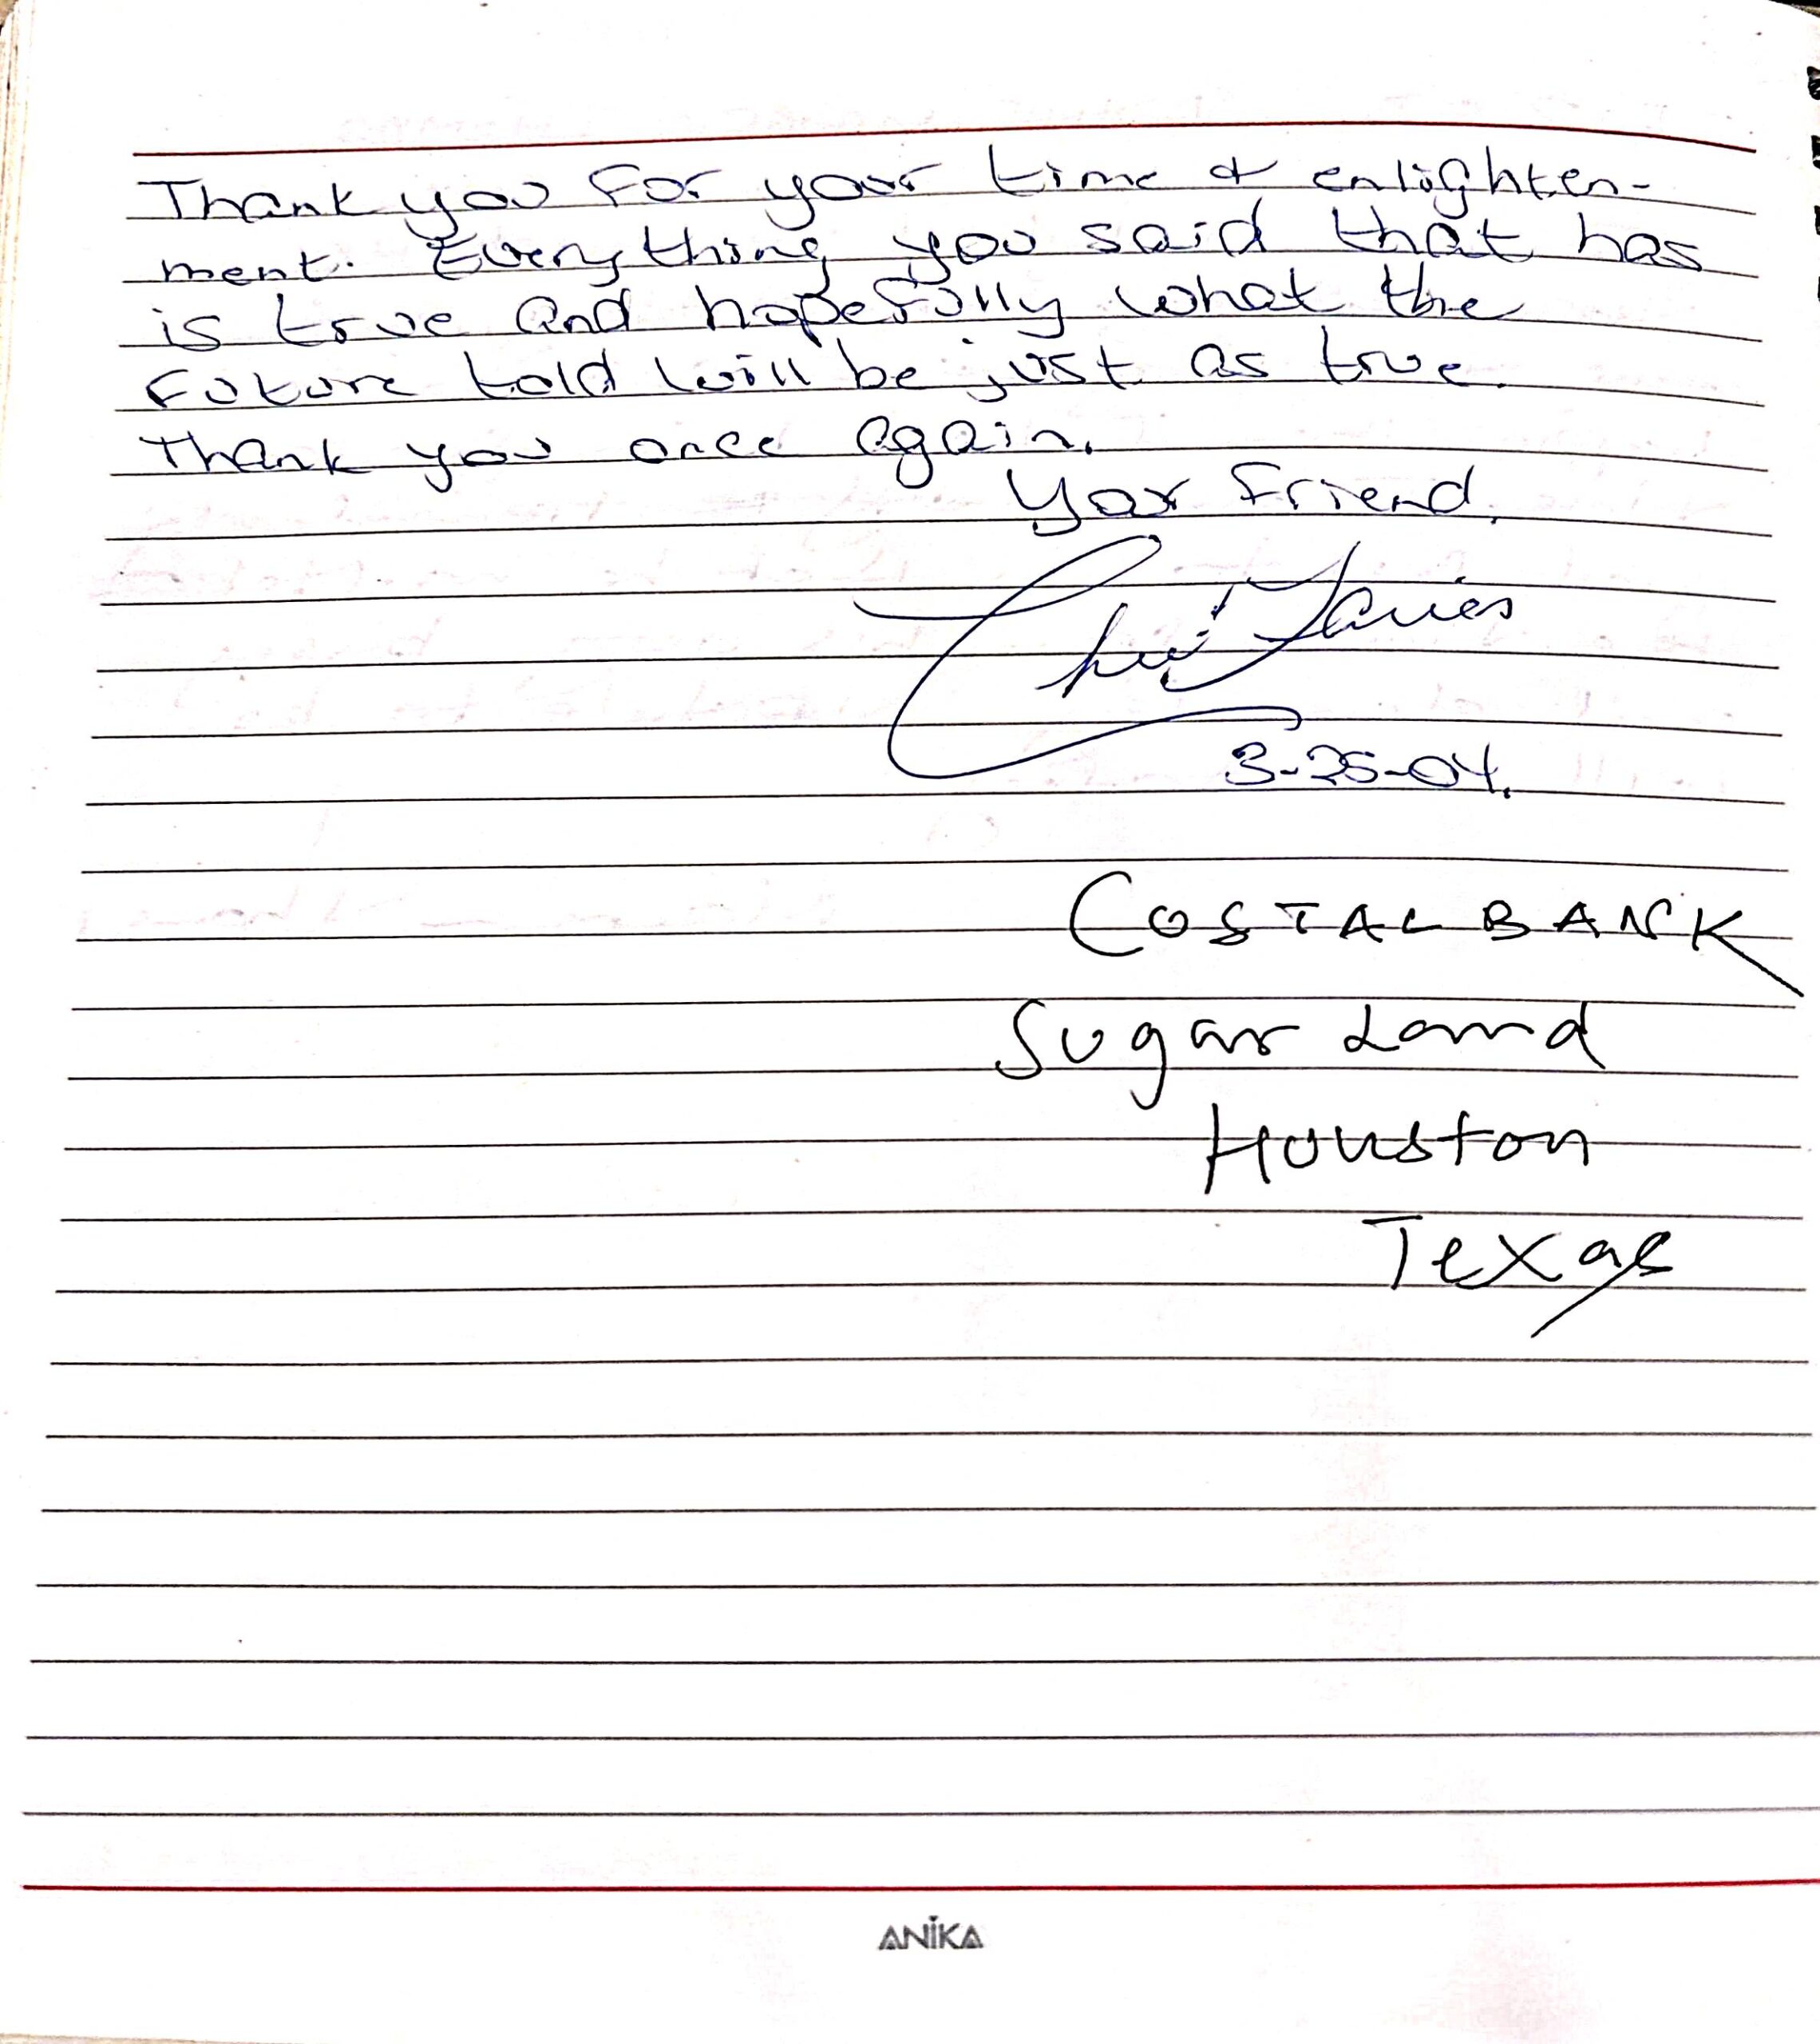 Thank you for your time & enlighten-
ment. Everything you said that has
is true and hopefully what the
future told will be just as true.
Thank you once again.
Your Friend,
3-25-04.
COSTAL BANK
Sugar Land
Houston
Texas
ANIKA